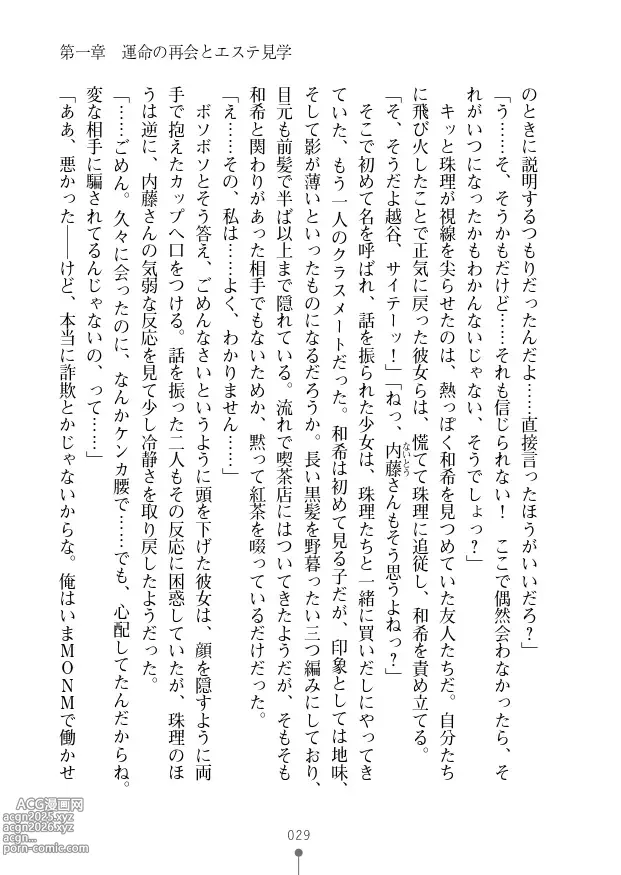 第一章　運命の再会とエステ見学
のときに説明するつもりだったんだよ……直接言ったほうがいいだろ？」
「う……そ、そうかもだけど……それも信じられない！　ここで偶然会わなかったら、そ
れがいつになったかもわかんないじゃない、そうでしょっ？」
　キッと珠理が視線を尖らせたのは、熱っぽく和希を見つめていた友人たちだ。自分たち
に飛び火したことで正気に戻った彼女らは、慌てて珠理に追従し、和希を責め立てる。
「そ、そうだよ越谷、サイテーッ！」「ねっ、内藤さんもそう思うよねっ？」
ないとう
　そこで初めて名を呼ばれ、話を振られた少女は、珠理たちと一緒に買いだしにやってき
ていた、もう一人のクラスメートだった。和希は初めて見る子だが、印象としては地味、
そして影が薄いといったものになるだろうか。長い黒髪を野暮ったい三つ編みにしており、
目元も前髪で半ば以上まで隠れている。流れで喫茶店にはついてきたようだが、そもそも
和希と関わりがあった相手でもないためか、黙って紅茶を啜っているだけだった。
「え……その、私は……よく、わかりません……」
　ボソボソとそう答え、ごめんなさいというように頭を下げた彼女は、顔を隠すように両
手で抱えたカップへ口をつける。話を振った二人もその反応に困惑していたが、珠理のほ
うは逆に、内藤さんの気弱な反応を見て少し冷静さを取り戻したようだった。
「……ごめん。久々に会ったのに、なんかケンカ腰で……でも、心配してたんだからね。
変な相手に騙されてるんじゃないの、って……」
「ああ、悪かった――けど、本当に詐欺とかじゃないからな。俺はいまＭＯＮＭで働かせ
029
ACG漫画网
acgn2025.xyz
acgn2026.xyz
acgn...
porn-comic.com